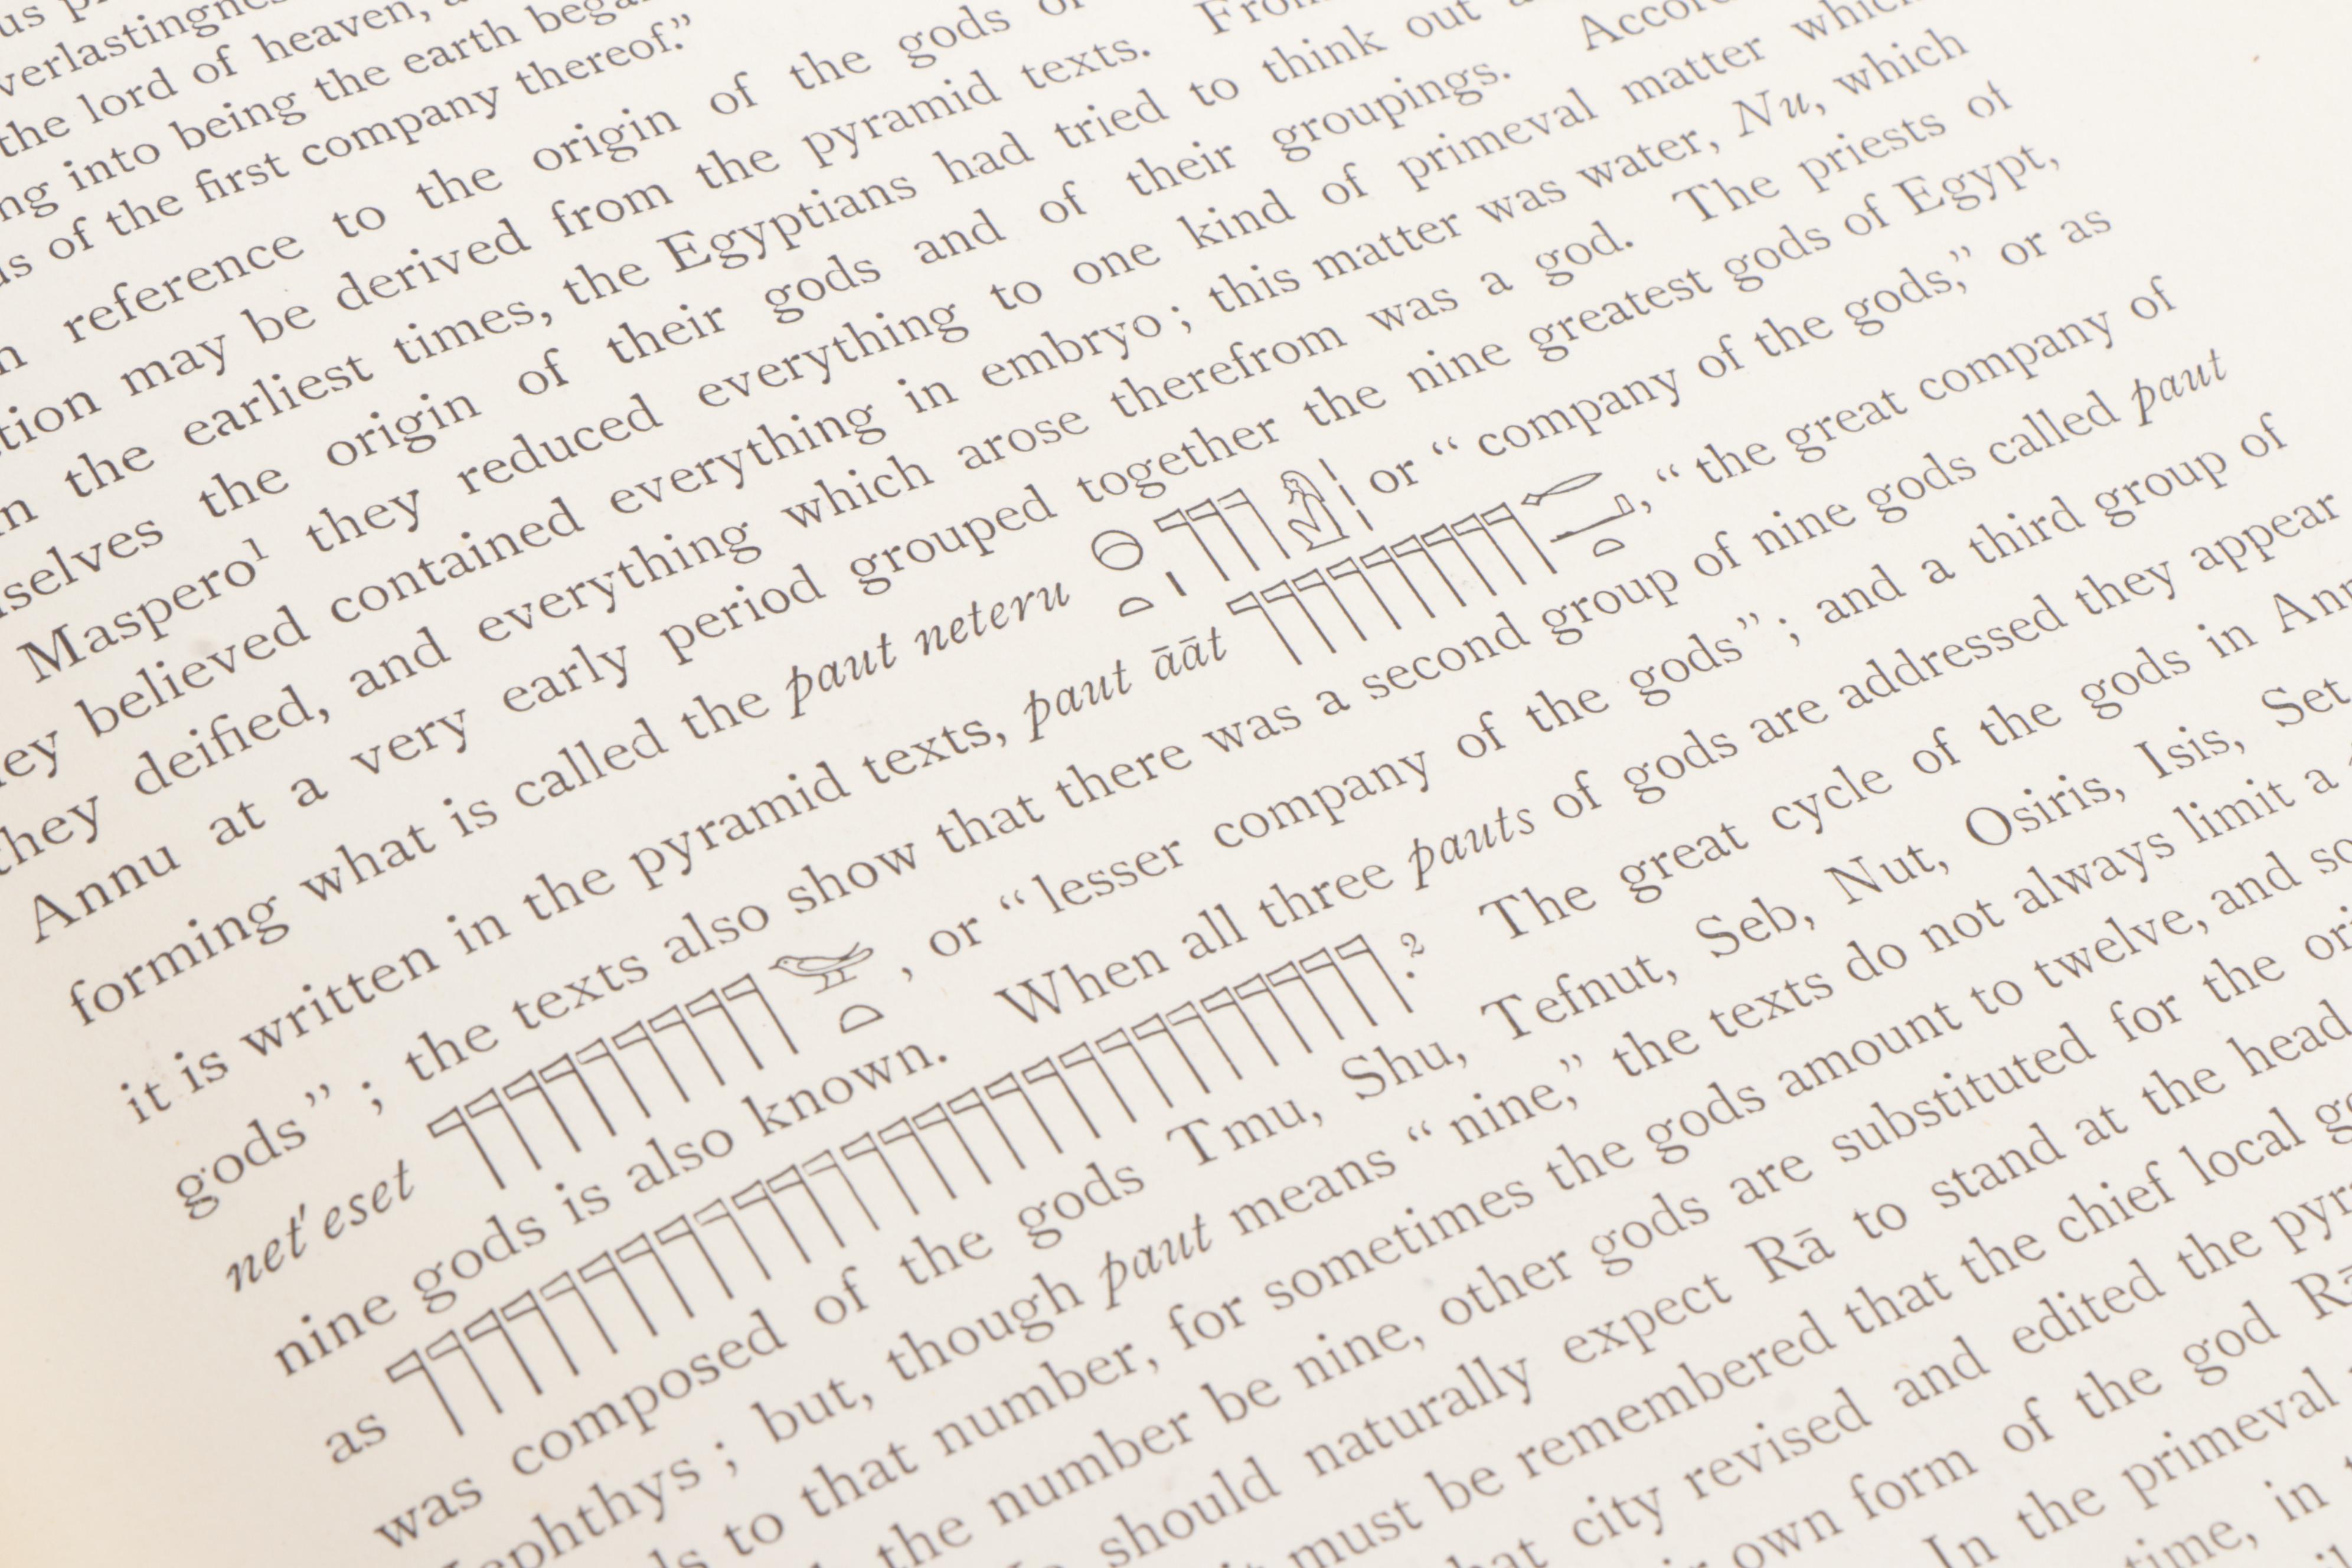 the lord of heaven,
into being the earth
of the first company thereof.”
reference to the origin of the gods of
may be derived from the pyramid texts. From
the earliest times, the Egyptians had tried to think out
the origin of their gods and of their groupings.
Maspero¹ they reduced everything to one kind of primeval matter which
believed contained everything in embryo ; this matter was water, Nu, which
they deified, and everything which arose therefrom was a god. The priests of
Annu at a very early period grouped together the nine greatest gods of Egypt,
forming what is called the paut neteru or “company of the gods,” or as
it is written in the pyramid texts, paut āāt , “the great company of
gods” ; the texts also show that there was a second group of nine gods called paut
net'eset , or “lesser company of the gods” ; and a third group of
nine gods is also known. When all three pauts of gods are addressed they appear
as .² The great cycle of the gods in
was composed of the gods Tmu, Shu, Tefnut, Seb, Nut, Osiris, Isis, Set
but, though paut means “nine,” the texts do not always limit a
to that number, for sometimes the gods amount to twelve, and
the number be nine, other gods are substituted for the
should naturally expect Rā to stand at the head
must be remembered that the chief local
city revised and edited the
own form of the god
In the primeval
time, in